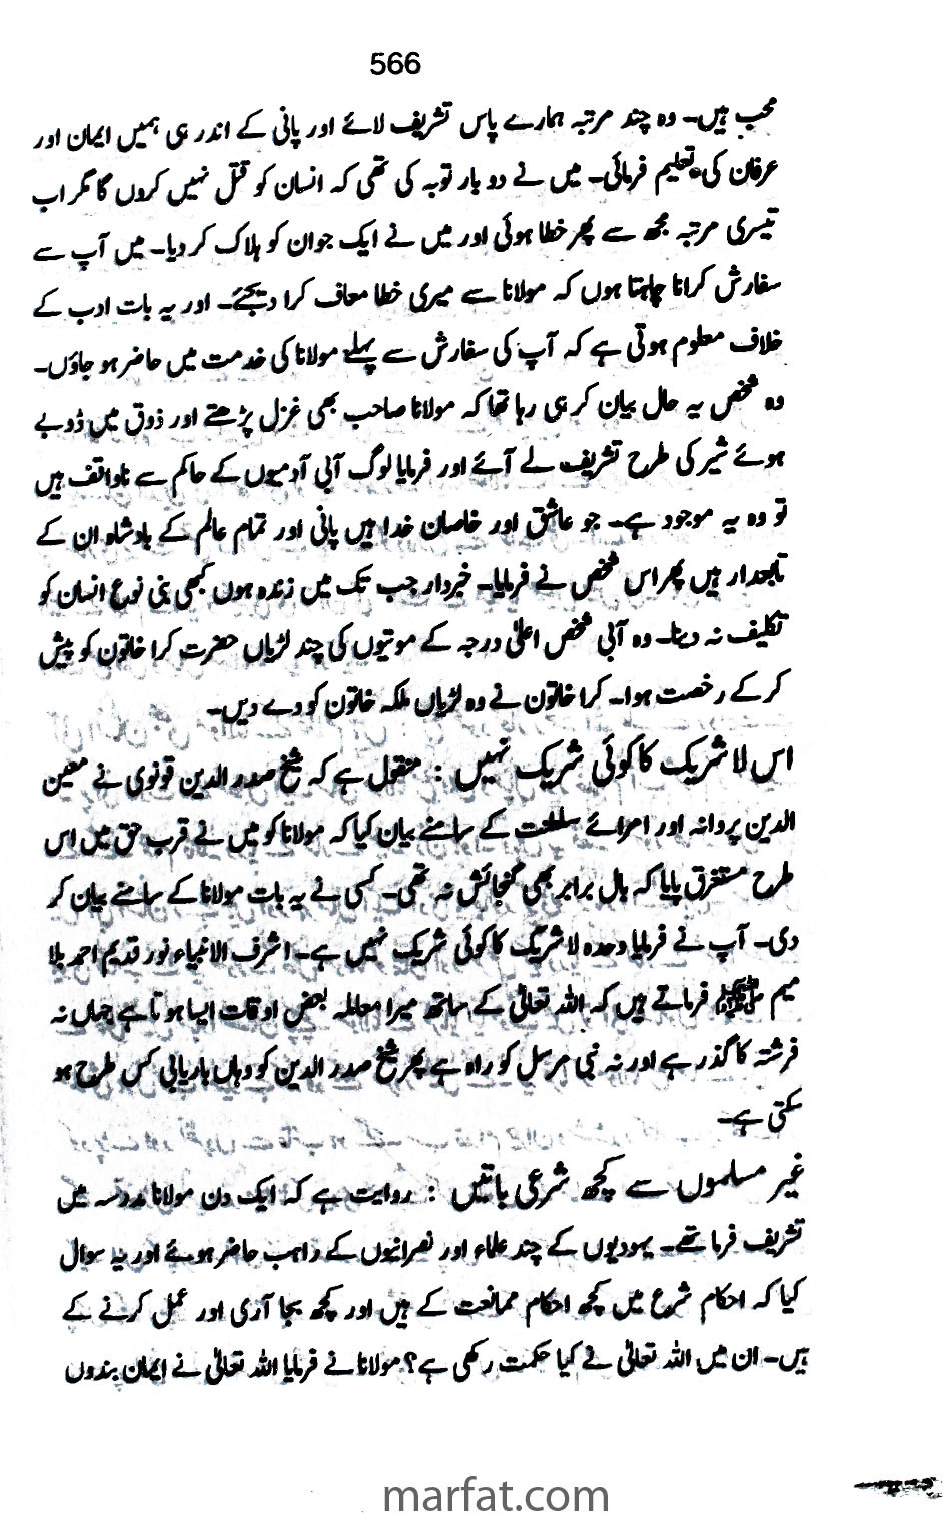 566
محب ہیں۔ وہ چند مرتبہ ہمارے پاس تشریف لائے اور پانی کے اندر ہی ہمیں ایمان اور
عرفان کی تعلیم فرمائی۔ میں نے دو بار توبہ کی تھی کہ انسان کو قتل نہیں کروں گا مگر اب
تیسری مرتبہ مجھ سے پھر خطا ہوئی اور میں نے ایک جوان کو ہلاک کر دیا۔ میں آپ سے
سفارش کرانا چاہتا ہوں کہ مولانا سے میری خطا معاف کرا دیجئے۔ اور یہ بات ادب کے
خلاف معلوم ہوتی ہے کہ آپ کی سفارش سے پہلے مولانا کی خدمت میں حاضر ہو جاؤں۔
وہ شخص یہ حال بیان کر ہی رہا تھا کہ مولانا صاحب بھی غزل پڑھتے اور ذوق میں ڈوبے
ہوئے شیر کی طرح تشریف لے آئے اور فرمایا لوگ آبی آدمیوں کے حاکم سے ناواقف ہیں
تو وہ یہ موجود ہے۔ جو عاشق اور خاصان خدا ہیں پانی اور تمام عالم کے بادشاہ ان کے
تابعدار ہیں پھر اس شخص نے فرمایا۔ خبردار جب تک میں زندہ ہوں کبھی بنی نوع انسان کو
تکلیف نہ دینا۔ وہ آبی شخص اعلیٰ درجہ کے موتیوں کی چند لڑیاں حضرت کرا خاتون کو پیش
کر کے رخصت ہوا۔ کرا خاتون نے وہ لڑیاں ملکہ خاتون کو دے دیں۔
اس لا شریک کا کوئی شریک نہیں : منقول ہے کہ شیخ صدر الدین قونوی نے معین
الدین پروانہ اور امرائے سلطنت کے سامنے بیان کیا کہ مولانا کو میں نے قرب حق میں اس
طرح مستغرق پایا کہ بال برابر بھی گنجائش نہ تھی۔ کسی نے یہ بات مولانا کے سامنے بیان کر
دی۔ آپ نے فرمایا وحدہ لا شریک کا کوئی شریک نہیں ہے۔ اشرف الانبیاء نور قدیم احمد بلا
میم ﷺ فرماتے ہیں کہ اللہ تعالیٰ کے ساتھ میرا معاملہ بعض اوقات ایسا ہوتا ہے جہاں نہ
فرشتہ کا گذر ہے اور نہ نبی مرسل کو راہ ہے پھر شیخ صدر الدین کو وہاں باریابی کس طرح ہو
سکتی ہے۔
غیر مسلموں سے کچھ شرعی باتیں : روایت ہے کہ ایک دن مولانا مدرسہ میں
تشریف فرما تھے۔ یہودیوں کے چند علماء اور نصرانیوں کے راہب حاضر ہوئے اور یہ سوال
کیا کہ احکام شرع میں کچھ احکام ممانعت کے ہیں اور کچھ بجا آوری اور عمل کرنے کے
ہیں۔ ان میں اللہ تعالیٰ نے کیا حکمت رکھی ہے؟ مولانا نے فرمایا اللہ تعالیٰ نے ایمان بندوں
marfat.com